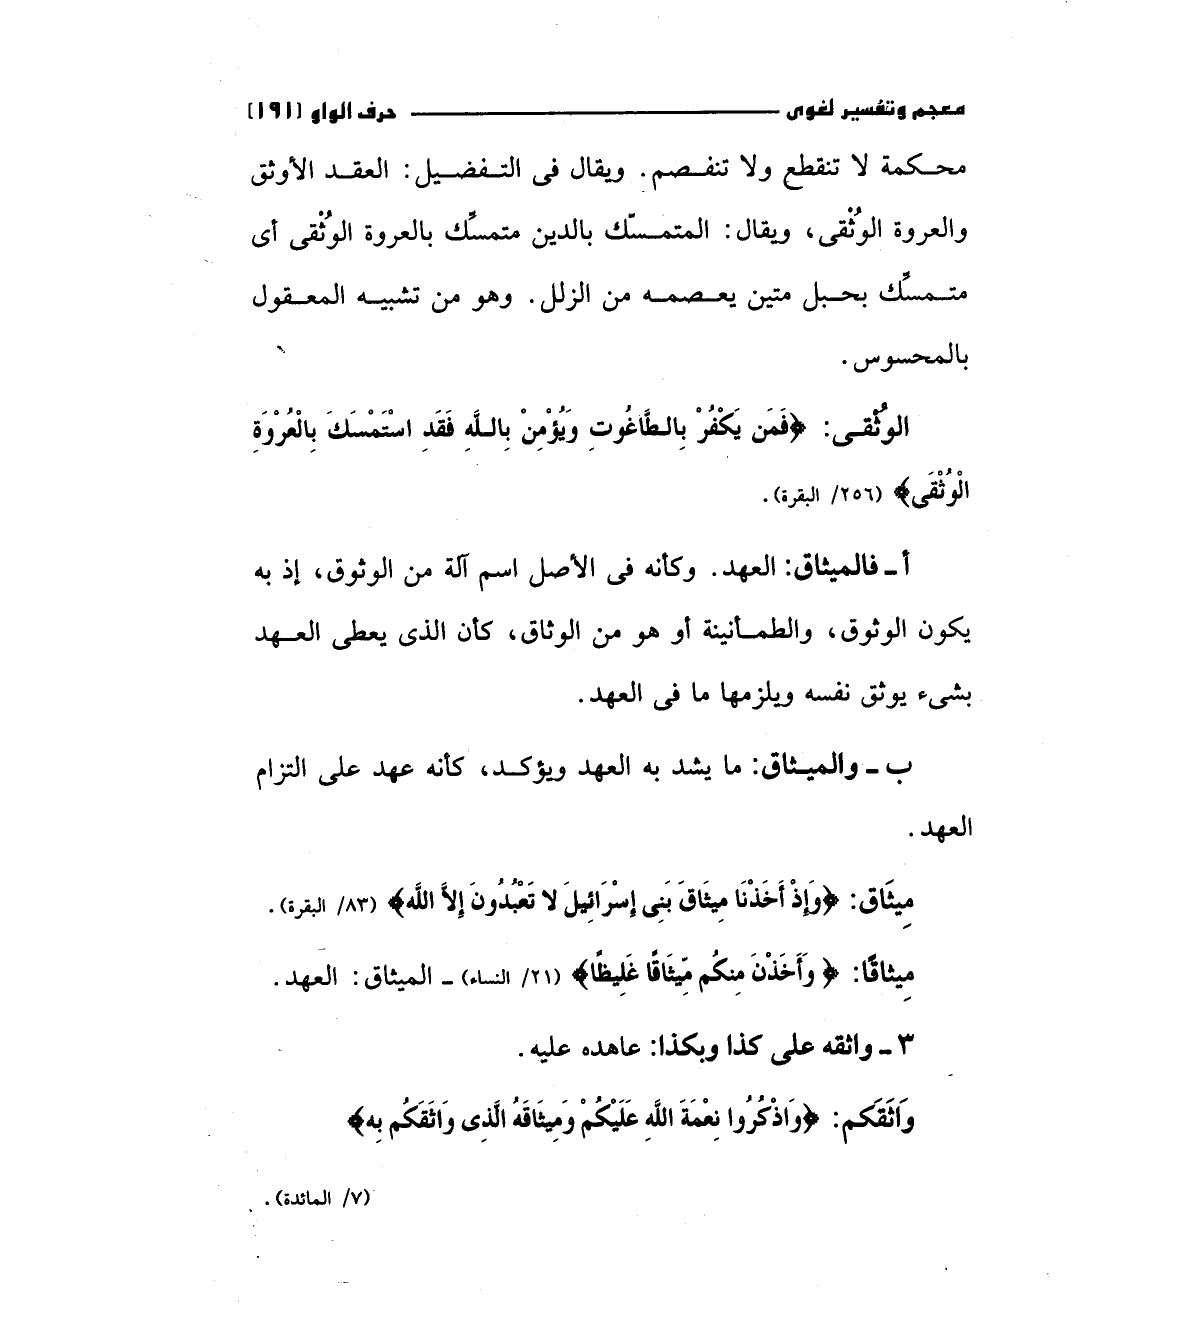 معجم وتفسير لغوى ــــــ حرف الواو [١٩١]
محكمة لا تنقطع ولا تنفصم. ويقال فى التفضيل: العقد الأوثق
والعروة الوُثْقى، ويقال: المتمسّك بالدين متمسِّك بالعروة الوُثْقى أى
متمسِّك بحبل متين يعصمه من الزلل. وهو من تشبيه المعقول
بالمحسوس.
الوُثْقى: ﴿فَمَن يَكْفُرْ بِالطَّاغُوتِ وَيُؤْمِنْ بِاللَّهِ فَقَدِ اسْتَمْسَكَ بِالْعُرْوَةِ
الْوُثْقَى﴾ (٢٥٦/ البقرة).
أ ـ فالميثاق: العهد. وكأنه فى الأصل اسم آلة من الوثوق، إذ به
يكون الوثوق، والطمأنينة أو هو من الوثاق، كأن الذى يعطى العهد
بشىء يوثق نفسه ويلزمها ما فى العهد.
ب ـ والميثاق: ما يشد به العهد ويؤكد، كأنه عهد على التزام
العهد.
مِيثَاق: ﴿وَإِذْ أَخَذْنَا مِيثَاقَ بَنِى إِسْرَائِيلَ لا تَعْبُدُونَ إِلاَّ اللَّه﴾ (٨٣/ البقرة).
مِيثاقًا: ﴿وَأَخَذْنَ مِنكُم مِّيثَاقًا غَلِيظًا﴾ (٢١/ النساء) ـ الميثاق: العهد.
٣ ـ واثقه على كذا وبكذا: عاهده عليه.
وَاثَقَكم: ﴿وَاذْكُرُوا نِعْمَةَ اللَّهِ عَلَيْكُمْ وَمِيثَاقَهُ الَّذِى وَاثَقَكُم بِه﴾
(٧/ المائدة).